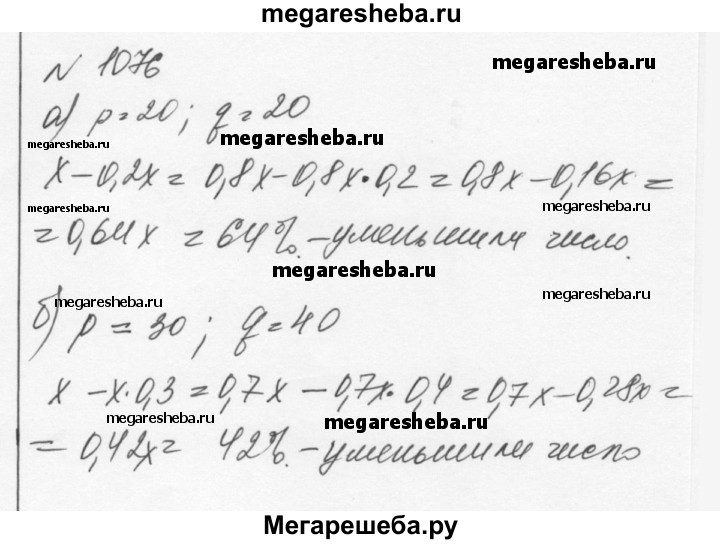 megaresheba.ru
N 1076
megaresheba.ru
а) p=20; q=20
megaresheba.ru
megaresheba.ru
x-0,2x= 0,8x-0,8x·0,2=0,8x-0,16x=
megaresheba.ru
megaresheba.ru
=0,64x = 64%.-уменьшили число.
megaresheba.ru
megaresheba.ru
megaresheba.ru
б) p=30; q=40
x-x·0,3=0,7x-0,7x·0,4=0,7x-0,28x=
megaresheba.ru
megaresheba.ru
=0,42x= 42%.-уменьшили число
Мегарешеба.ру